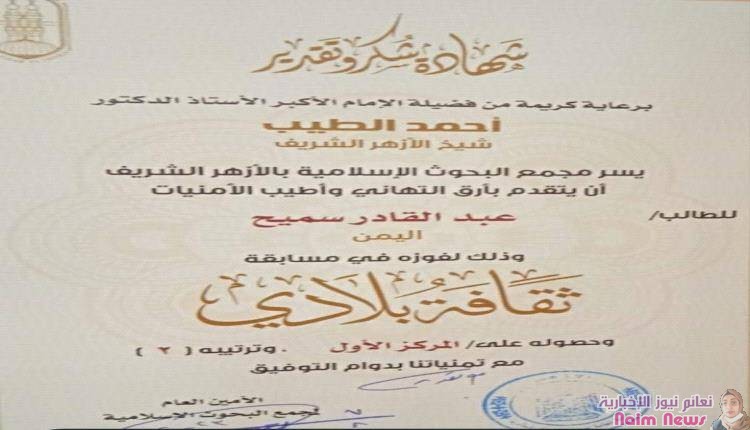 شهادة شكر وتقدير
برعاية كريمة من فضيلة الإمام الأكبر الأستاذ الدكتور
أحمد الطيب
شيخ الأزهر الشريف
يسر مجمع البحوث الإسلامية بالأزهر الشريف
أن يتقدم بأرق التهاني وأطيب الأمنيات
للطالب/ عبد القادر سميح
اليمن
وذلك لفوزه في مسابقة
ثقافة بلادي
وحصوله على/ المركز الأول . وترتيبه ( ٢ )
مع تمنياتنا بدوام التوفيق
الأمين العام
لمجمع البحوث الإسلامية
نعائم نيوز الاخبارية
Naim News